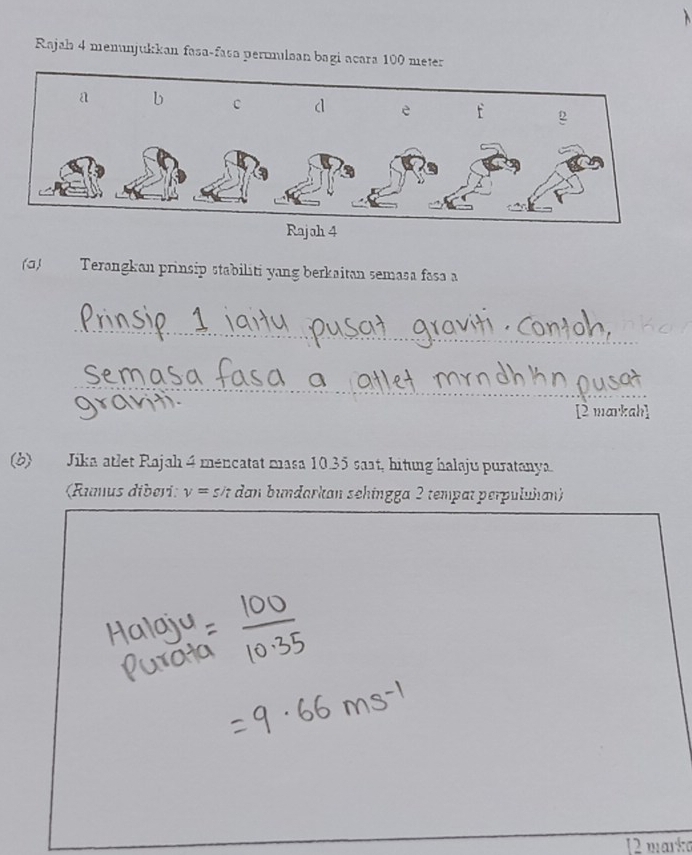 Rajah 4 menunjukkan fasa-fasa permulaan bagi acara 100 meter
a b c d e f g
Rajah 4
(a) Terangkan prinsip stabiliti yang berkaitan semasa fasa a
Prinsip 1 iaitu pusat graviti. Contoh,
semasa fasa a atlet mrndhkn pusat
graviti.
[2 markah]
(b) Jika atlet Rajah 4 mencatat masa 10.35 saat, hitung halaju puratanya.
(Rumus diberi: v = s/t dan bundarkan sehingga 2 tempat perpuluhan)
Halaju Purata = 100 / 10.35
= 9.66 ms⁻¹
[2 marka